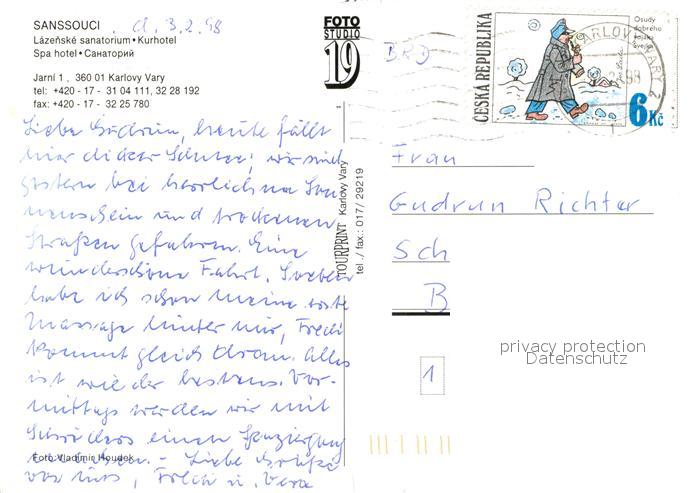 SANSSOUCI
d. 3.2.98
Lázeňské sanatorium • Kurhotel
Spa hotel • Санаторий
Jarní 1, 360 01 Karlovy Vary
tel: +420 - 17 - 31 04 111, 32 28 192
fax: +420 - 17 - 32 25 780
Liebe Gudrun, heute fällt
hier dicker Schnee, wir sind
gestern bei herrlichem Son
nenschein und trockenen
Straßen gefahren. Eine
wunderschöne Fahrt. Soeben
habe ich schon meine erste
Massage hinter mir, Fredi
kommt gleich dran. Alles
ist wieder bestens. Vor-
mittags werden wir mit
Schröders einen Spaziergang
machen. - Liebe Grüße
von uns, Fredi u. Vera
Foto: Vladimír Houdek
FOTO
STUDIO
19
TOURPRINT Karlovy Vary
tel./ fax.: 017/ 29219
BRD
ČESKÁ REPUBLIKA
Osudy
dobrého
vojáka
Švejka
6 Kč
KARLOVY VARY 2
Frau
Gudrun Richter
Sch
B
1
privacy protection
Datenschutz